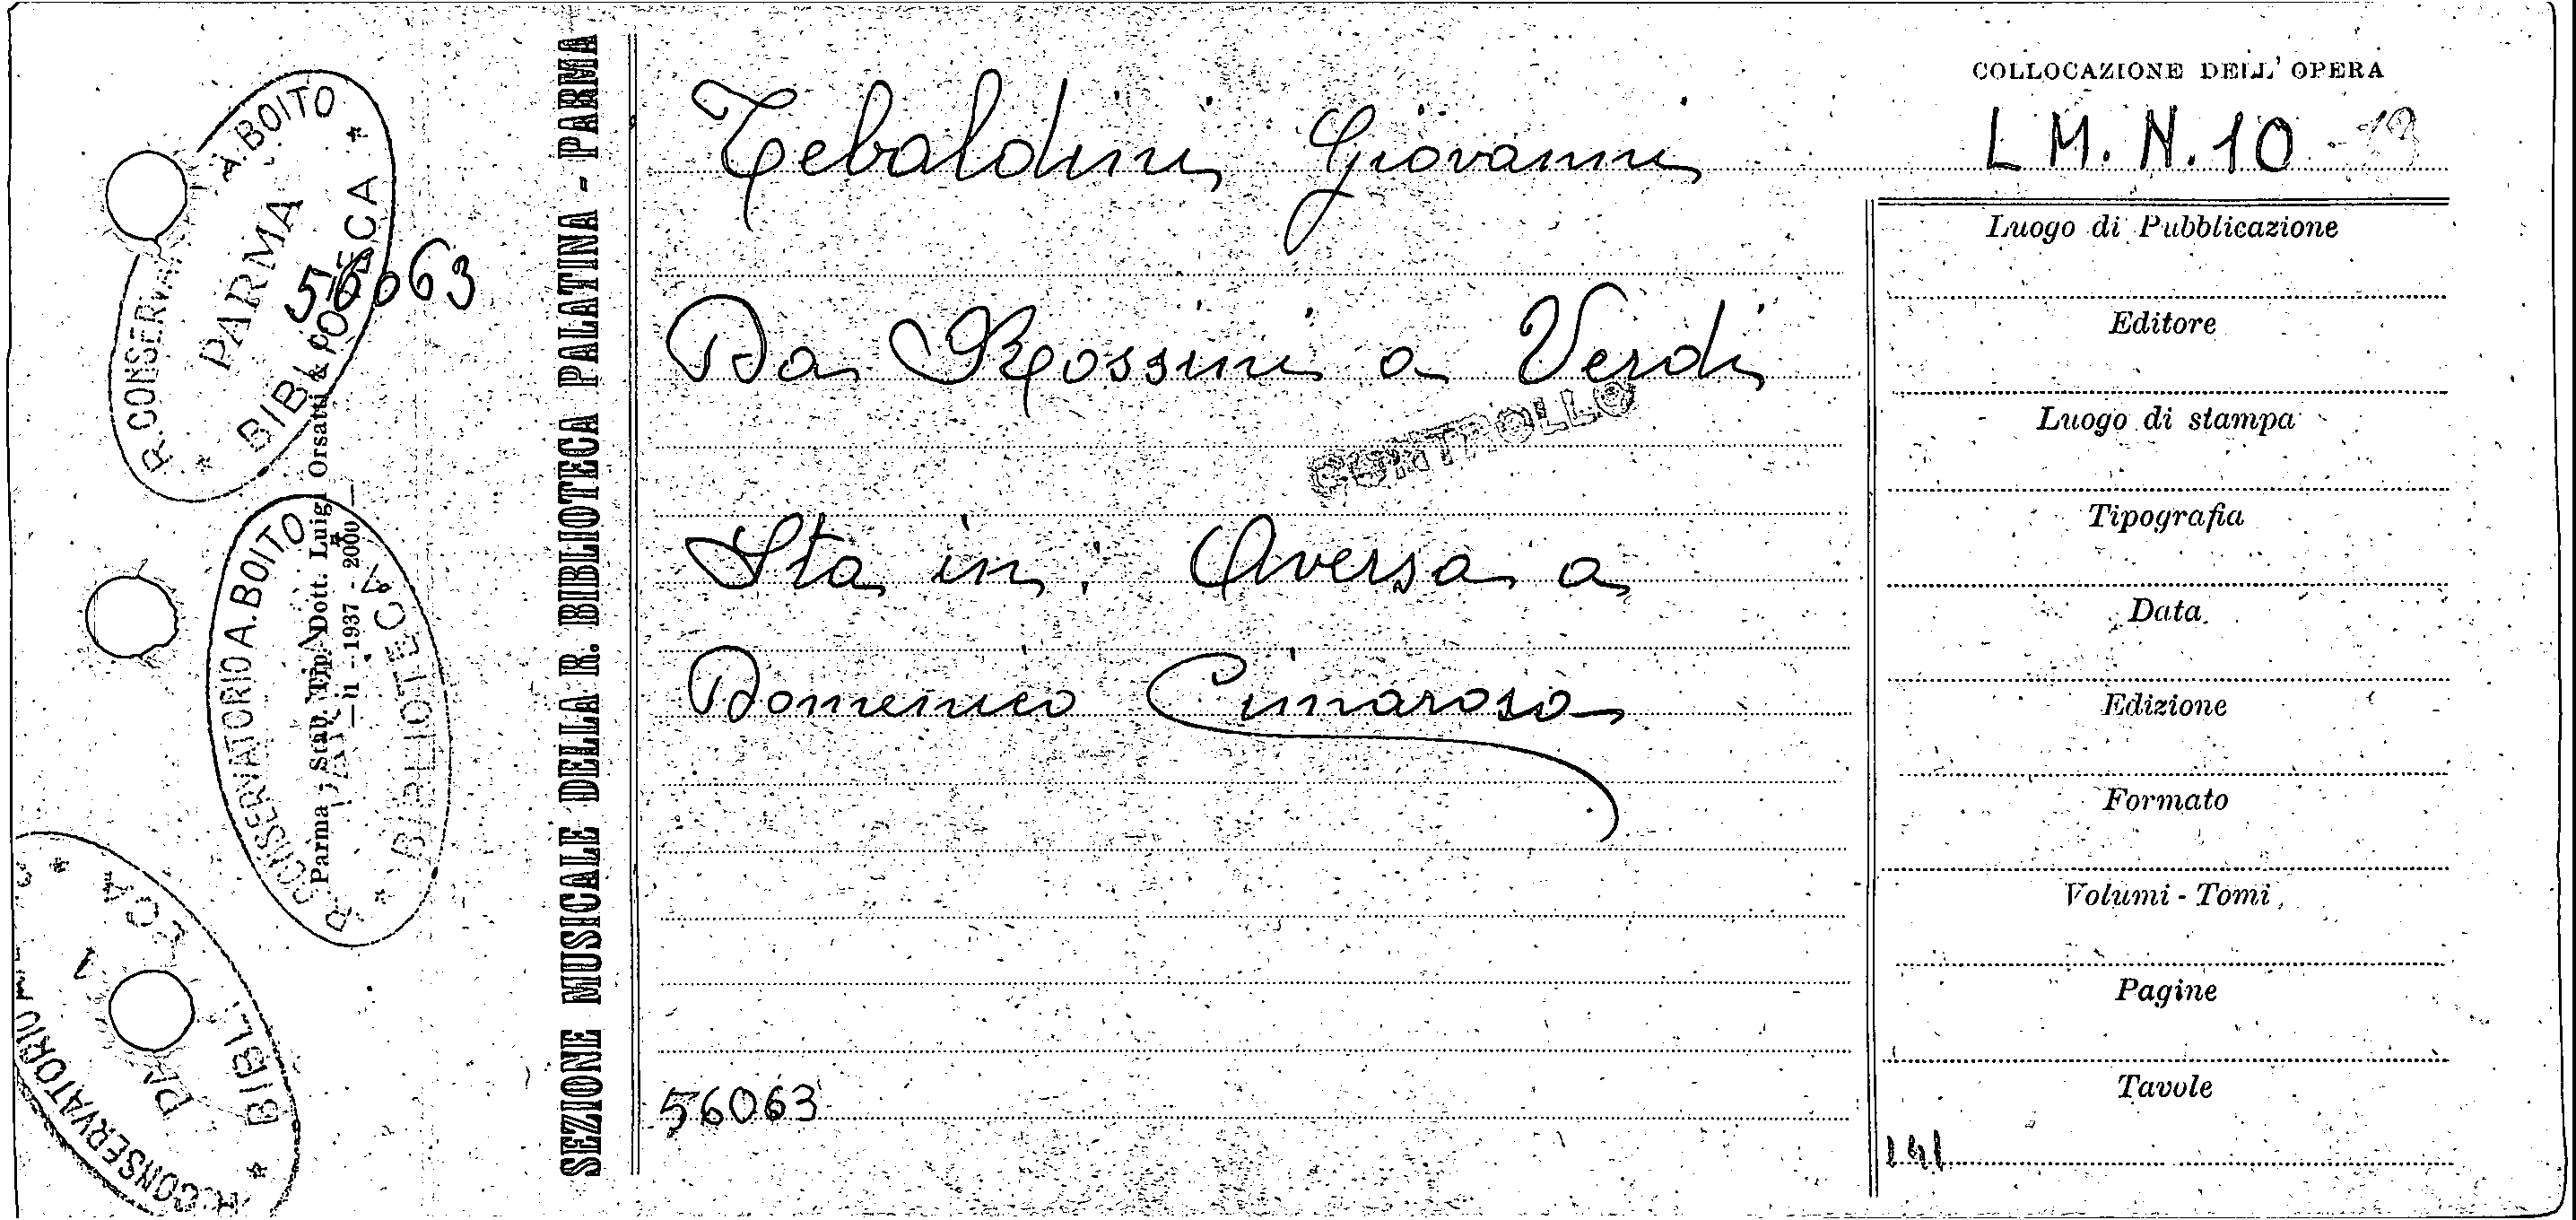 COLLOCAZIONE DELL' OPERA
Tebaldini Giovanni
L M. N. 10 - 13
Da Rossini a Verdi
CONTROLLO
Sta in: Aversa a
Domenico Cimarosa
56063
Luogo di Pubblicazione
Editore
Luogo di stampa
Tipografia
Data
Edizione
Formato
Volumi - Tomi
Pagine
Tavole
141
SEZIONE MUSICALE DELLA R. BIBLIOTECA PALATINA - PARMA
Parma - Stab. Tip. Dott. Luigi Orsatti & C.
- 11 - 1937 - 2000 -
A. BOITO
R. CONSERV
PARMA
56063
R. CONSERVATORIO A. BOITO
BIBLIOTECA
R. CONSERVATORIO